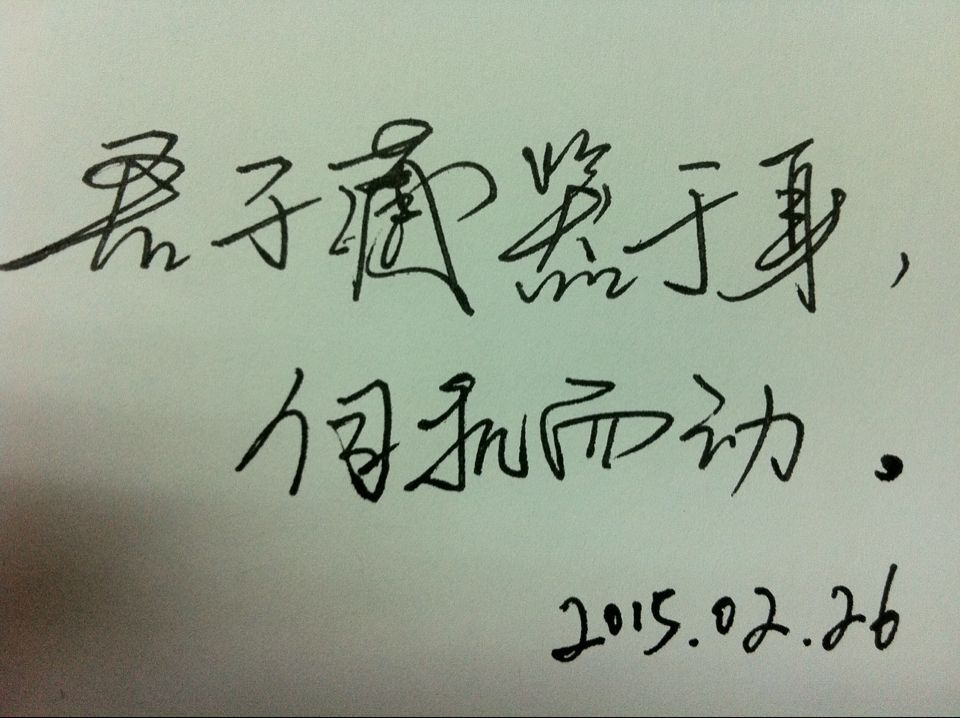 君子藏器于身，
伺机而动。
2015.02.26